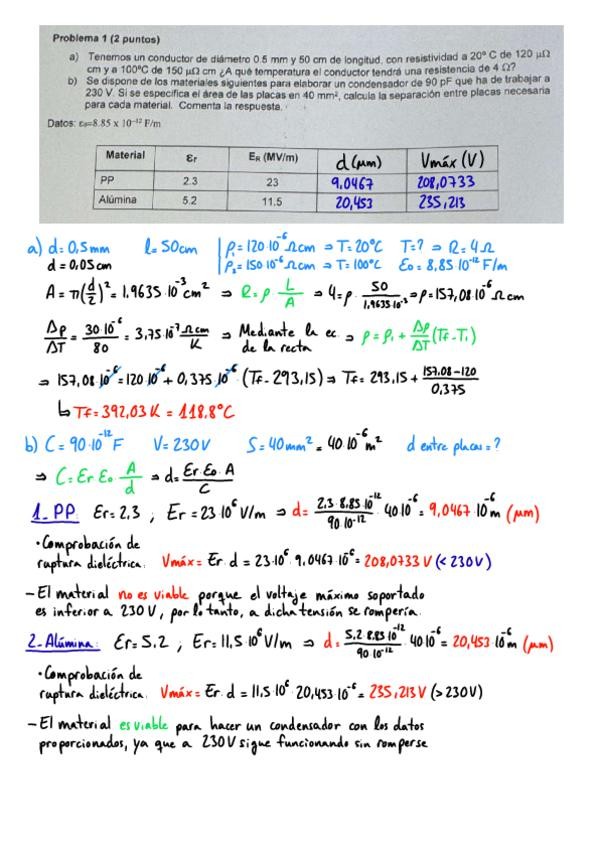 Problema 1 (2 puntos)
a) Tenemos un conductor de diámetro 0.5 mm y 50 cm de longitud, con resistividad a 20º C de 120 μΩ
cm y a 100ºC de 150 μΩ cm ¿A qué temperatura el conductor tendrá una resistencia de 4 Ω?
b) Se dispone de los materiales siguientes para elaborar un condensador de 90 pF que ha de trabajar a
230 V. Si se especifica el área de las placas en 40 mm², calcula la separación entre placas necesaria
para cada material. Comenta la respuesta.
Datos: ε₀=8.85 x 10⁻¹² F/m
Material εr ER (MV/m) d (μm) Vmáx (V)
PP 2.3 23 9,0467 208,0733
Alúmina 5.2 11.5 20,453 235,213
a) d=0,5mm l=50cm ρ₁=120·10⁻⁶ Ωcm ⇒ T=20ºC T=? ⇒ R=4Ω
d=0,05cm ρ₂=150·10⁻⁶ Ωcm ⇒ T=100ºC Ɛo=8,85·10⁻¹² F/m
A=π(d/2)²=1,9635·10⁻³cm² ⇒ R=ρ·L/A ⇒ 4=ρ·50/1,9635·10⁻³ ⇒ ρ=157,08·10⁻⁶ Ωcm
Δρ/ΔT = 30·10⁻⁶/80 = 3,75·10⁻⁷ Ωcm/K ⇒ Mediante la ec. de la recta ⇒ ρ=ρ₁+Δρ/ΔT(Tf-T₁)
⇒ 157,08·10⁻⁶=120·10⁻⁶+0,375·10⁻⁶(Tf-293,15) ⇒ Tf=293,15+157.08-120/0,375
↳ Tf=392,03K=118,8ºC
b) C=90·10⁻¹²F V=230V S=40mm²=40·10⁻⁶m² d entre placas=?
⇒ C=Ɛr·Ɛo·A/d ⇒ d=Ɛr·Ɛo·A/C
1.-PP Ɛr=2,3 ; Er=23·10⁶V/m ⇒ d=2,3·8,85·10⁻¹²/90·10⁻¹²·40·10⁻⁶=9,0467·10⁻⁶m (μm)
·Comprobación de
ruptura dieléctrica: Vmáx=Er·d=23·10⁶·9,0467·10⁻⁶=208,0733V (<230V)
-El material no es viable porque el voltaje máximo soportado
es inferior a 230V, por lo tanto, a dicha tensión se rompería.
2-Alúmina: Ɛr=5.2 ; Er=11,5·10⁶V/m ⇒ d=5,2·8.85·10⁻¹²/90·10⁻¹²·40·10⁻⁶=20,453·10⁻⁶m (μm)
·Comprobación de
ruptura dieléctrica: Vmáx=Er·d=11,5·10⁶·20,453·10⁻⁶=235,213V (>230V)
-El material es viable para hacer un condensador con los datos
proporcionados, ya que a 230V sigue funcionando sin romperse